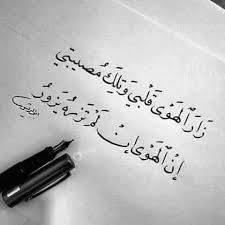 زَارَ الْهَوَى قَلْبِي وَتِلْكَ مُصِيبَتِي
إِنْ الْهَوَى إِنْ لَمْ تَزُرْهُ يَزُورُ